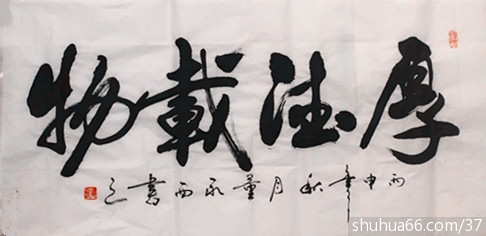 厚德載物
丙申年秋月
shuhua66.com/37